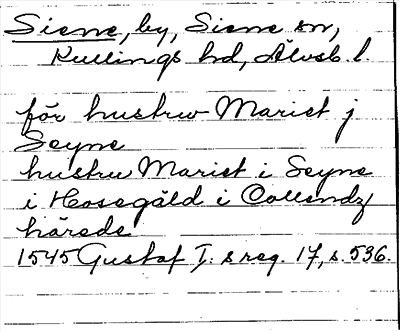 Siene, by, Siene sn,
Kullings hd, Älvsb. l.
för hustrw Mariet j
Seyne
hustru Mariet i Seyne
i Hosegäld i Collendz
härede
1545 Gustaf I:s reg. 17, s. 536.